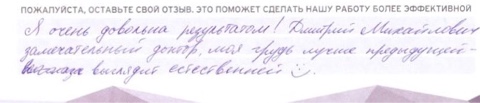 ПОЖАЛУЙСТА, ОСТАВЬТЕ СВОЙ ОТЗЫВ. ЭТО ПОМОЖЕТ СДЕЛАТЬ НАШУ РАБОТУ БОЛЕЕ ЭФФЕКТИВНОЙ
Я очень довольна результатом! Дмитрий Михайлович
замечательный доктор, моя грудь лучше предыдущей -
выглядит естественней